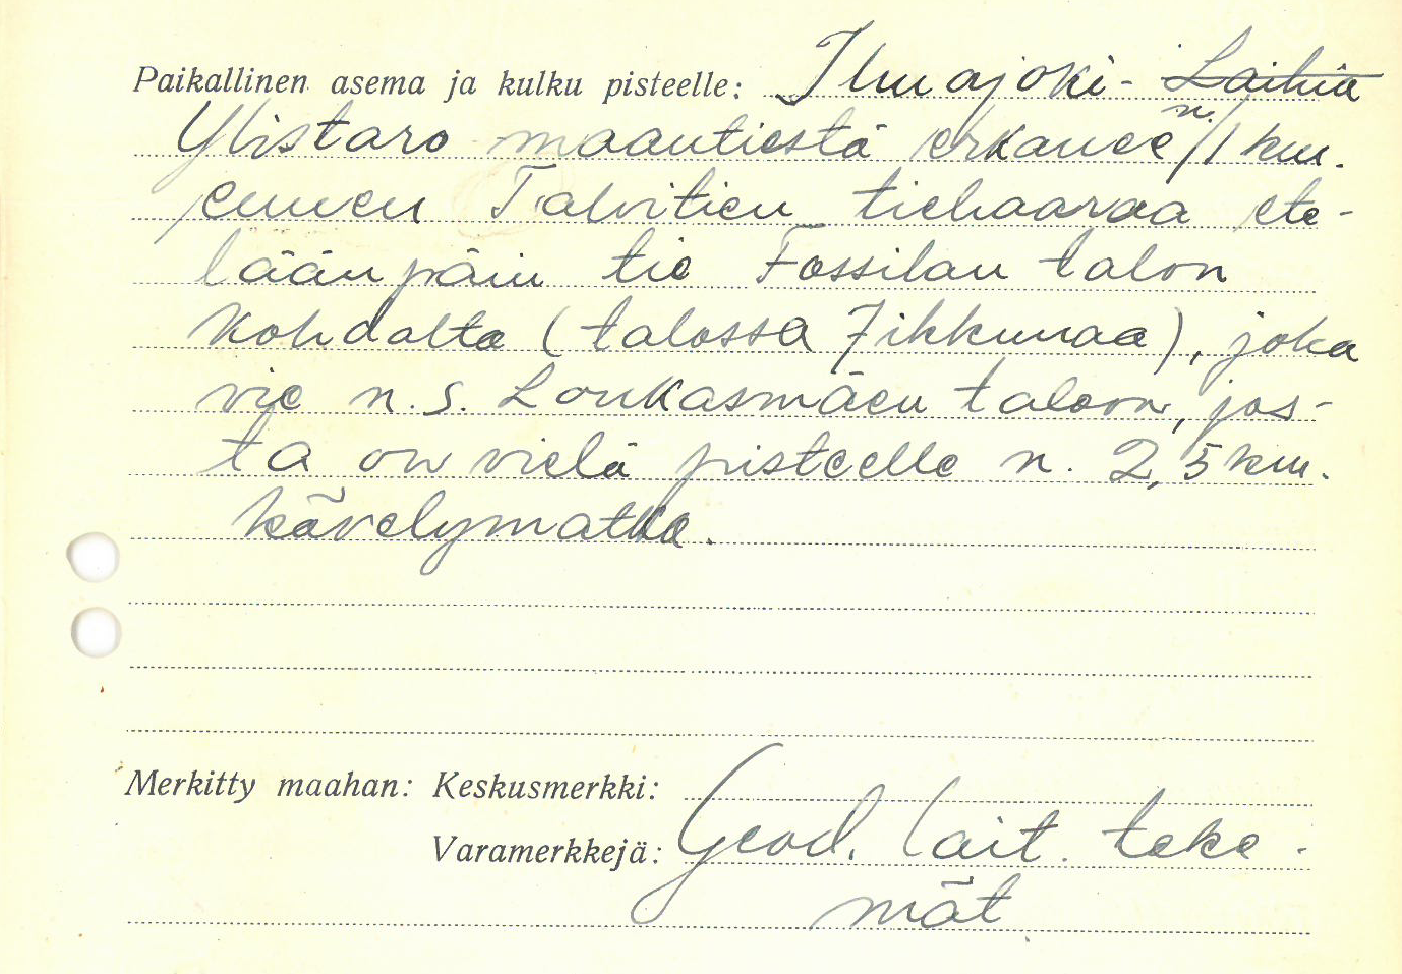 Paikallinen asema ja kulku pisteelle: Ilmajoki- Laihia
Ylistaro maantiestä erkanee n. 1 km.
ennen Talvitien tiehaaraa ete-
läänpäin tie Fossilan talon
kohdalta (talossa 7 ikkunaa), joka
vie n.s. Loukasmäen taloon, jos-
ta on vielä pisteelle n. 2,5 km.
kävelymatka.
Merkitty maahan: Keskusmerkki:
Varamerkkejä: Geod. lait. teke-
mät